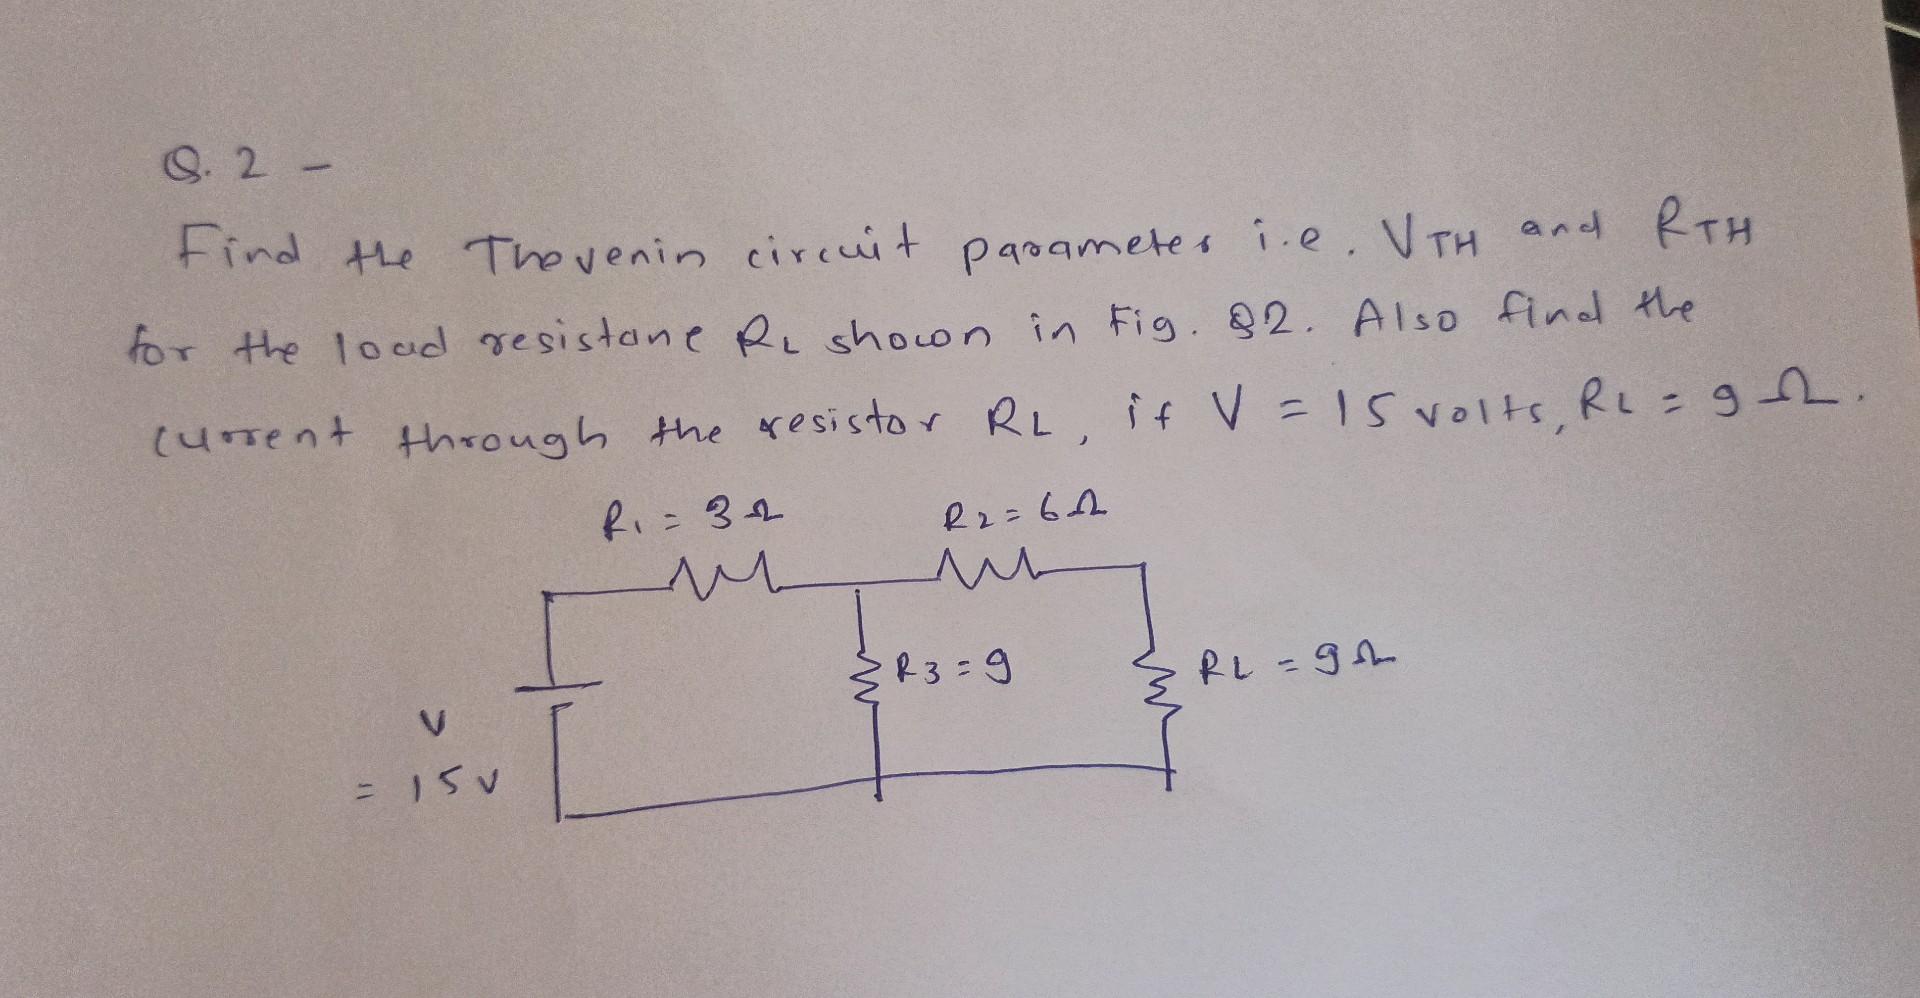 Q. 2 -
Find the Thevenin circuit parameter i.e. VTH and RTH
for the load resistane RL shown in Fig. Q2. Also find the
current through the resistor RL, if V = 15 volts, RL = 9 Ω.
R1 = 3 Ω R2 = 6 Ω
R3 = 9 RL = 9 Ω
V
= 15 V